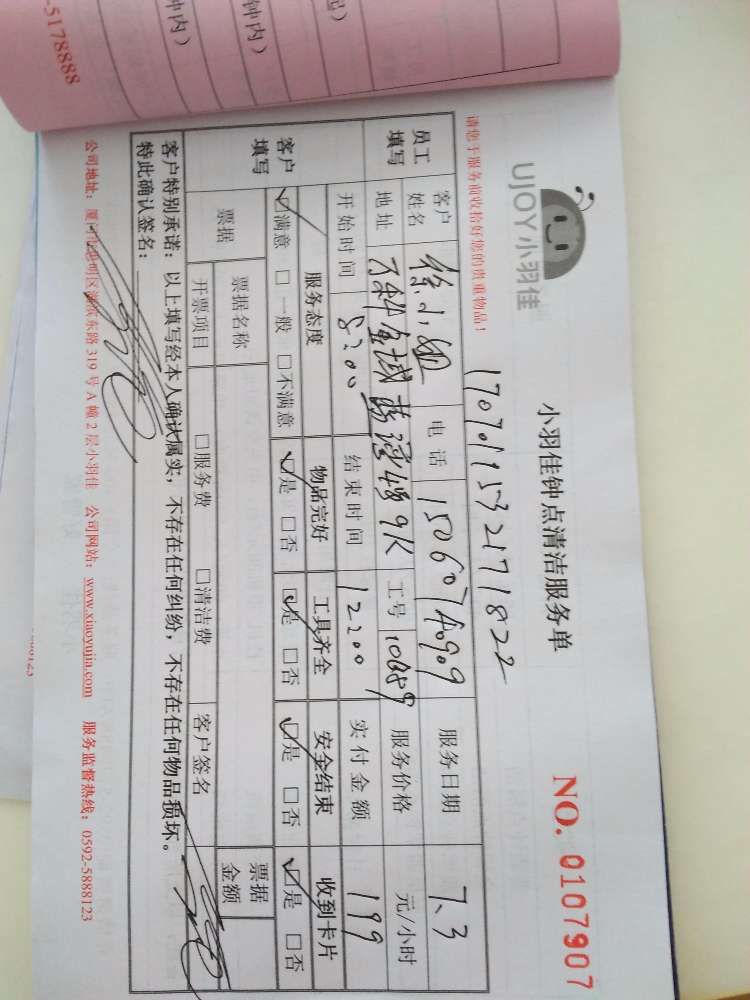 -5178888
钟内）
钟内）
UJOY小羽佳
小羽佳钟点清洁服务单
NO. 0107907
请您于服务前收拾好您的贵重物品！
17070119532171822
员工填写 客户姓名 徐小姐 电话 服务日期 7.3
地址 万科金域 9K 工号 服务价格 元/小时
开始时间 8:00 结束时间 12:00 实付金额 199
客户填写 服务态度 物品完好 工具齐全 安全结束 收到卡片
☑满意 □一般 □不满意 ☑是 □否 ☑是 □否 ☑是 □否 ☑是 □否
票据 票据名称 票据金额
开票项目 □服务费 □清洁费 客户签名
客户特别承诺：以上填写经本人确认属实，不存在任何纠纷，不存在任何物品损坏。
特此确认签名：
公司地址：厦门市思明区湖滨东路 319 号 A 幢 2 层小羽佳 公司网站：www.xiaoyujia.com 服务监督热线：0592-5888123